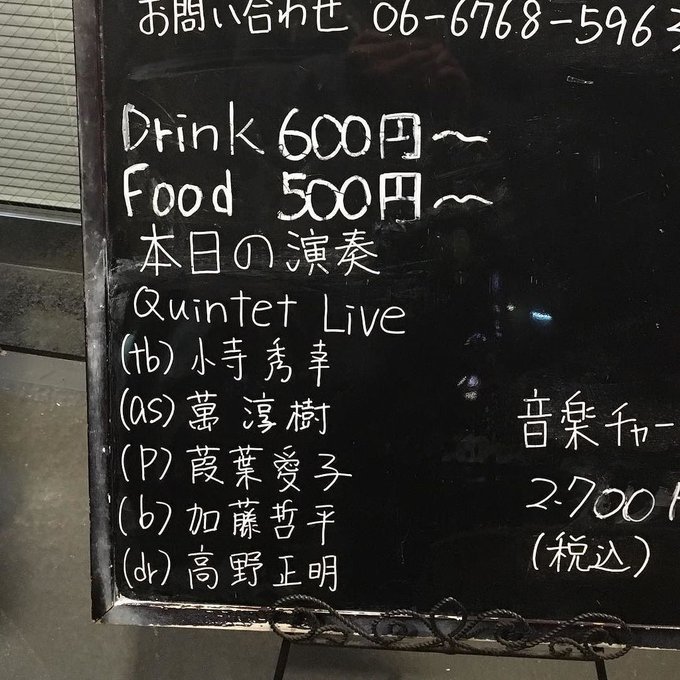 お問い合わせ 06-6768-5963
Drink 600円～
Food 500円～
本日の演奏
Quintet Live
(tb) 小寺秀幸
(as) 萬 淳樹
(P) 葭葉愛子
(b) 加藤哲平
(dr) 高野正明
音楽チャー
2.700
(税込)